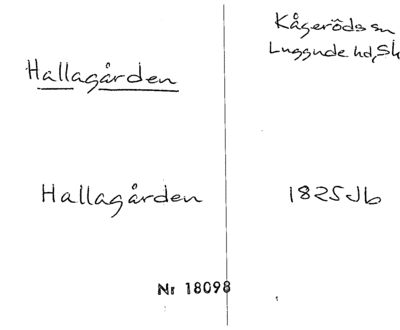 Hallagården
Kågeröds sn
Luggude hd, Sk
Hallagården
1825 Jb
Nr 18098